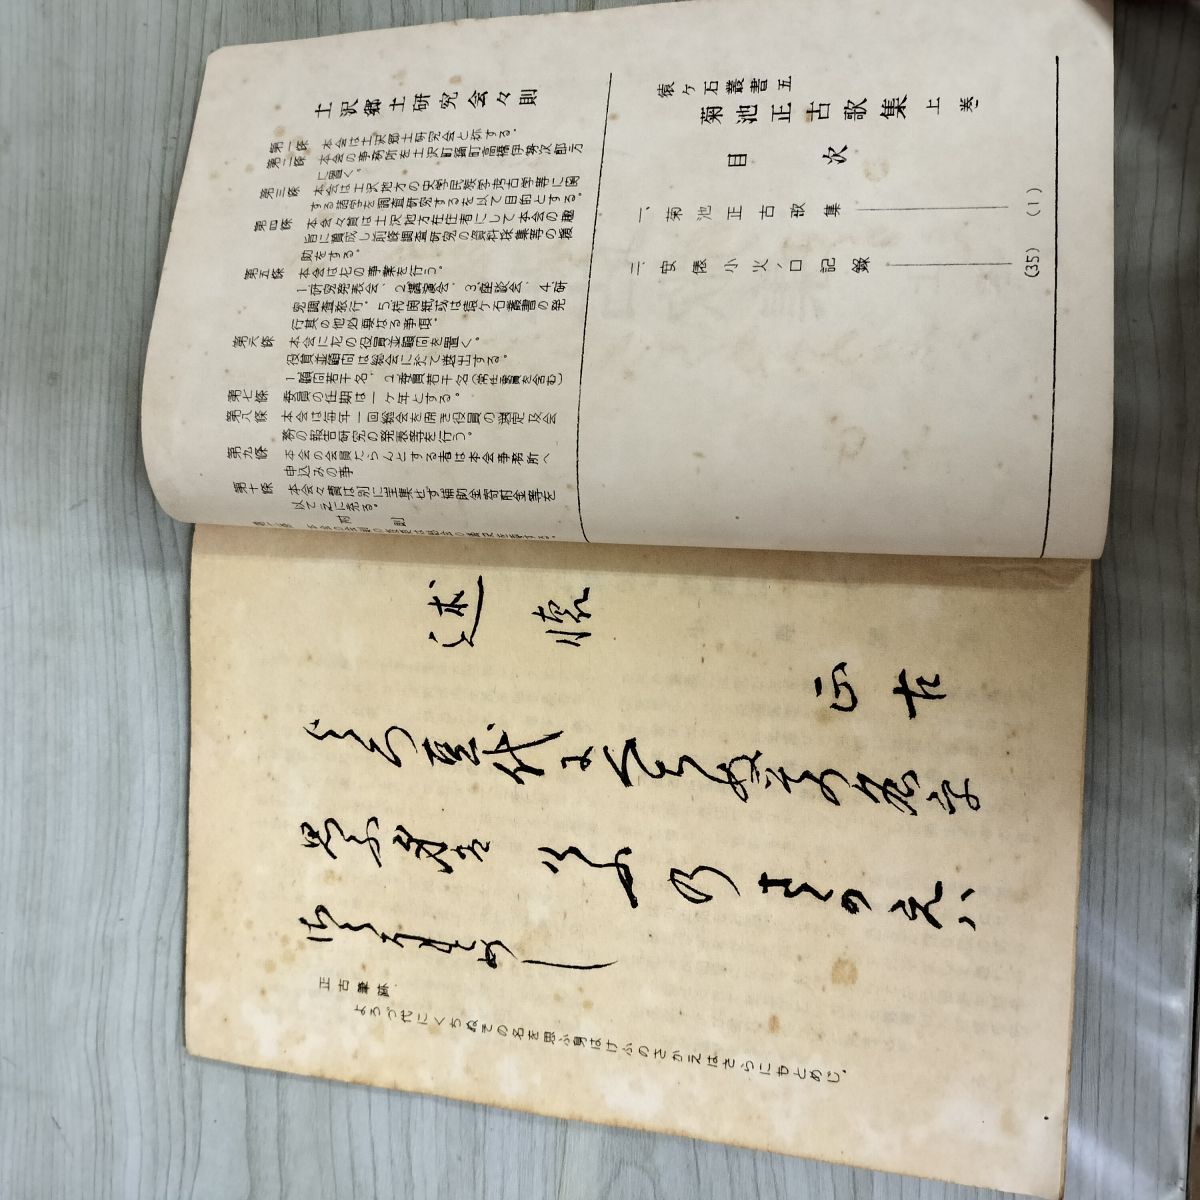 猿ヶ石叢書五
菊池正古歌集 上巻
目次
一、菊池正古歌集 (1)
二、安俵小火ノ口記録 (35)
土沢郷土研究会々則
第一條 本会は土沢郷土研究会と称する。
第二條 本会の事務所を土沢町鏑町高橋伊勢次郎方
に置く。
第三條 本会は土沢地方の史学民族学考古学等に関
する諸学を調査研究するを以て目的とする。
第四條 本会々員は土沢地方在住者にして本会の趣
旨に賛成し別條調査研究の資料採集等の援
助をする。
第五條 本会は左の事業を行う。
1.研究発表会、2.講演会、3.座談会、4.研
究調査旅行。5.代関紙或は猿ヶ石叢書の発
行其の他必要なる事項。
第六條 本会に左の役員並顧問を置く。
役員並顧問は総会に於て選出する。
1.顧問若干名、2.委員若干名(常任委員を含む)
第七條 委員の任期は一ヶ年とする。
第八條 本会は毎年一回総会を開き役員の選定及会
務の報告研究の発表等を行う。
第九條 本会の会員たらんとする者は本会事務所へ
申込みの事
第十條 本会々費は別に徴集せず補助金寄附金等を
以てえに充る。
附則
述懐
正古
正古筆跡
よろづ代にくちぬその名を思ふ身はけふのさかえはさらにもとめじ.